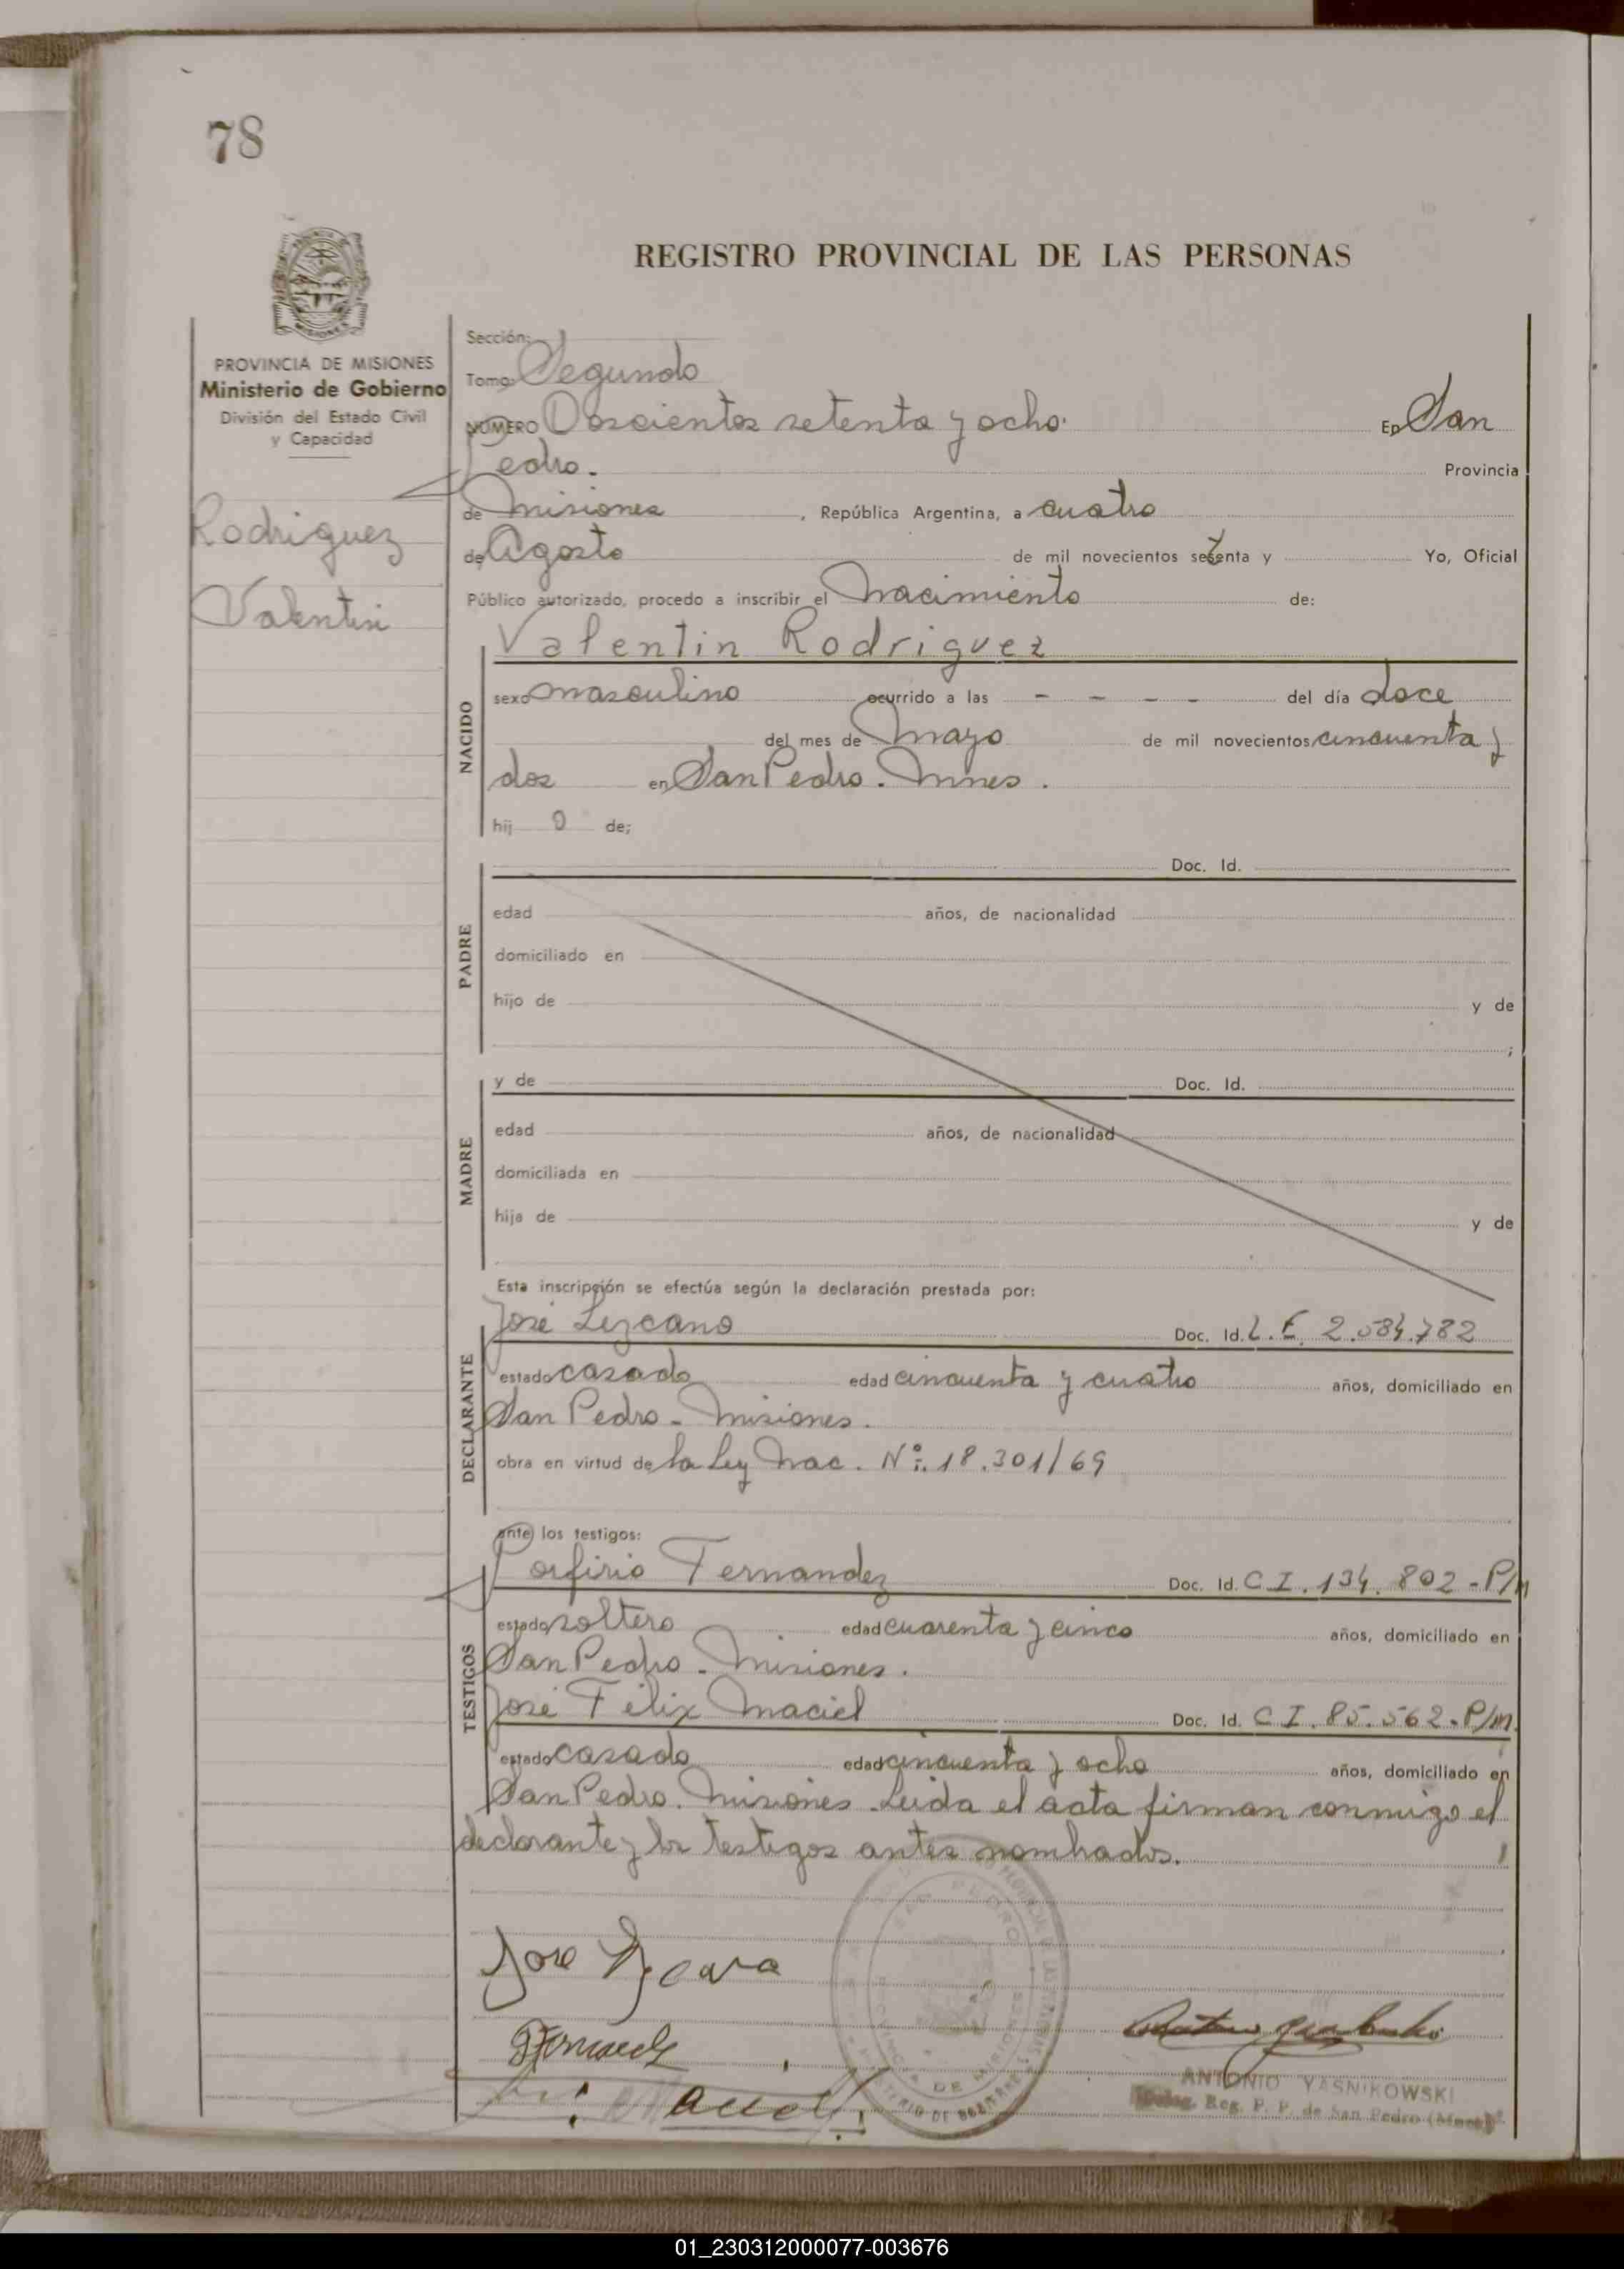 78
REGISTRO PROVINCIAL DE LAS PERSONAS
PROVINCIA DE MISIONES
Ministerio de Gobierno
División del Estado Civil
y Capacidad
Rodriguez
Valentin
Sección:
Tomo: Segundo
NÚMERO Doscientos setenta y ocho. En San
Pedro. Provincia
de Misiones, República Argentina, a cuatro
de Agosto de mil novecientos setenta y Yo, Oficial
Público autorizado, procedo a inscribir el Nacimiento de:
NACIDO
Valentin Rodriguez
sexo masculino ocurrido a las - - - - del día doce
del mes de Mayo de mil novecientos cincuenta y
dos en San Pedro. Mnes.
hij o de;
PADRE
Doc. Id.
edad años, de nacionalidad
domiciliado en
hijo de y de
;
MADRE
y de Doc. Id.
edad años, de nacionalidad
domiciliada en
hija de y de
Esta inscripción se efectúa según la declaración prestada por:
DECLARANTE
José Lezcano Doc. Id. L.E. 2.584.782
estado casado edad cincuenta y cuatro años, domiciliado en
San Pedro - Misiones.
obra en virtud de la Ley Nac. Nº 18.301/69
ante los testigos:
TESTIGOS
Porfirio Fernandez Doc. Id. C I. 134. 802 - P/M
estado soltero edad cuarenta y cinco años, domiciliado en
San Pedro - Misiones.
José Félix Maciel Doc. Id. C I. 85.562 - P/M.
estado casado edad cincuenta y ocho años, domiciliado en
San Pedro. Misiones. Leida el acta firman conmigo el
declarante y los testigos antes nombrados.
Jose
ANTONIO YASNIKOWSKI
Deleg. Reg. P. P. de San Pedro (Mnes)
SAN PEDRO
DE MISIONES
01_230312000077-003676